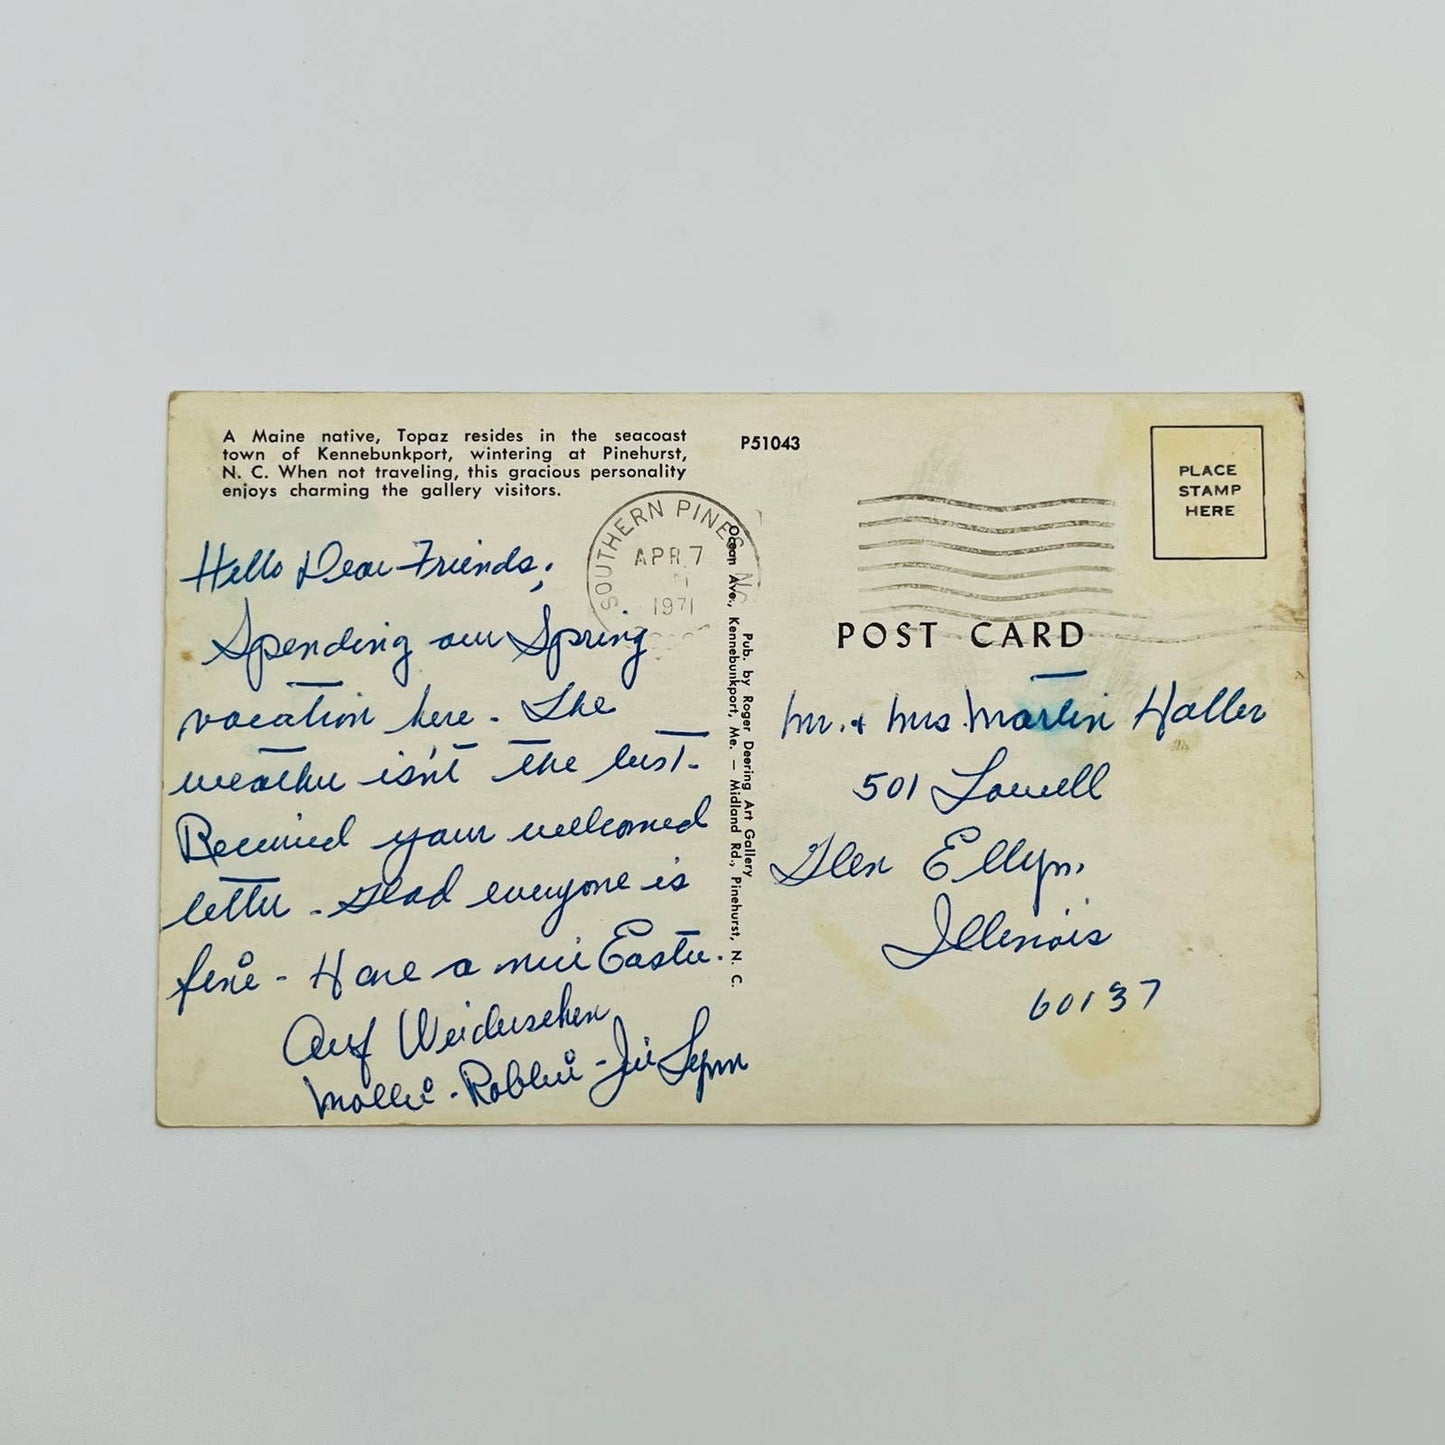 A Maine native, Topaz resides in the seacoast
town of Kennebunkport, wintering at Pinehurst,
N. C. When not traveling, this gracious personality
enjoys charming the gallery visitors.
P51043
PLACE
STAMP
HERE
SOUTHERN PINES NC
APR 7
1971
Pub. by Roger Deering Art Gallery
Ocean Ave., Kennebunkport, Me. — Midland Rd., Pinehurst, N. C.
POST CARD
Hello Dear Friends,
Spending our Spring
vacation here. The
weather isn't the best.
Received your welcomed
letter. Glad everyone is
fine - Have a nice Easter.
Auf Weiderschen
Mollie - Robbie - Jie Lynn
Mr. + Mrs. Martin Haller
501 Lowell
Glen Ellyn,
Illinois
60137